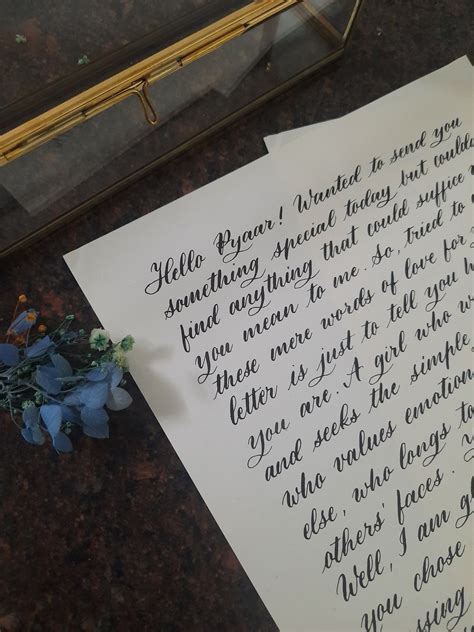 Hello Pyaar! Wanted to send you
something special today but
find anything that could suffice
you mean to me. So, tried to
these mere words of love for
letter is just to tell you
you are. A girl who
and seeks the simple
who values emotion
else, who longs to
others' faces.
Well, I am
you chose